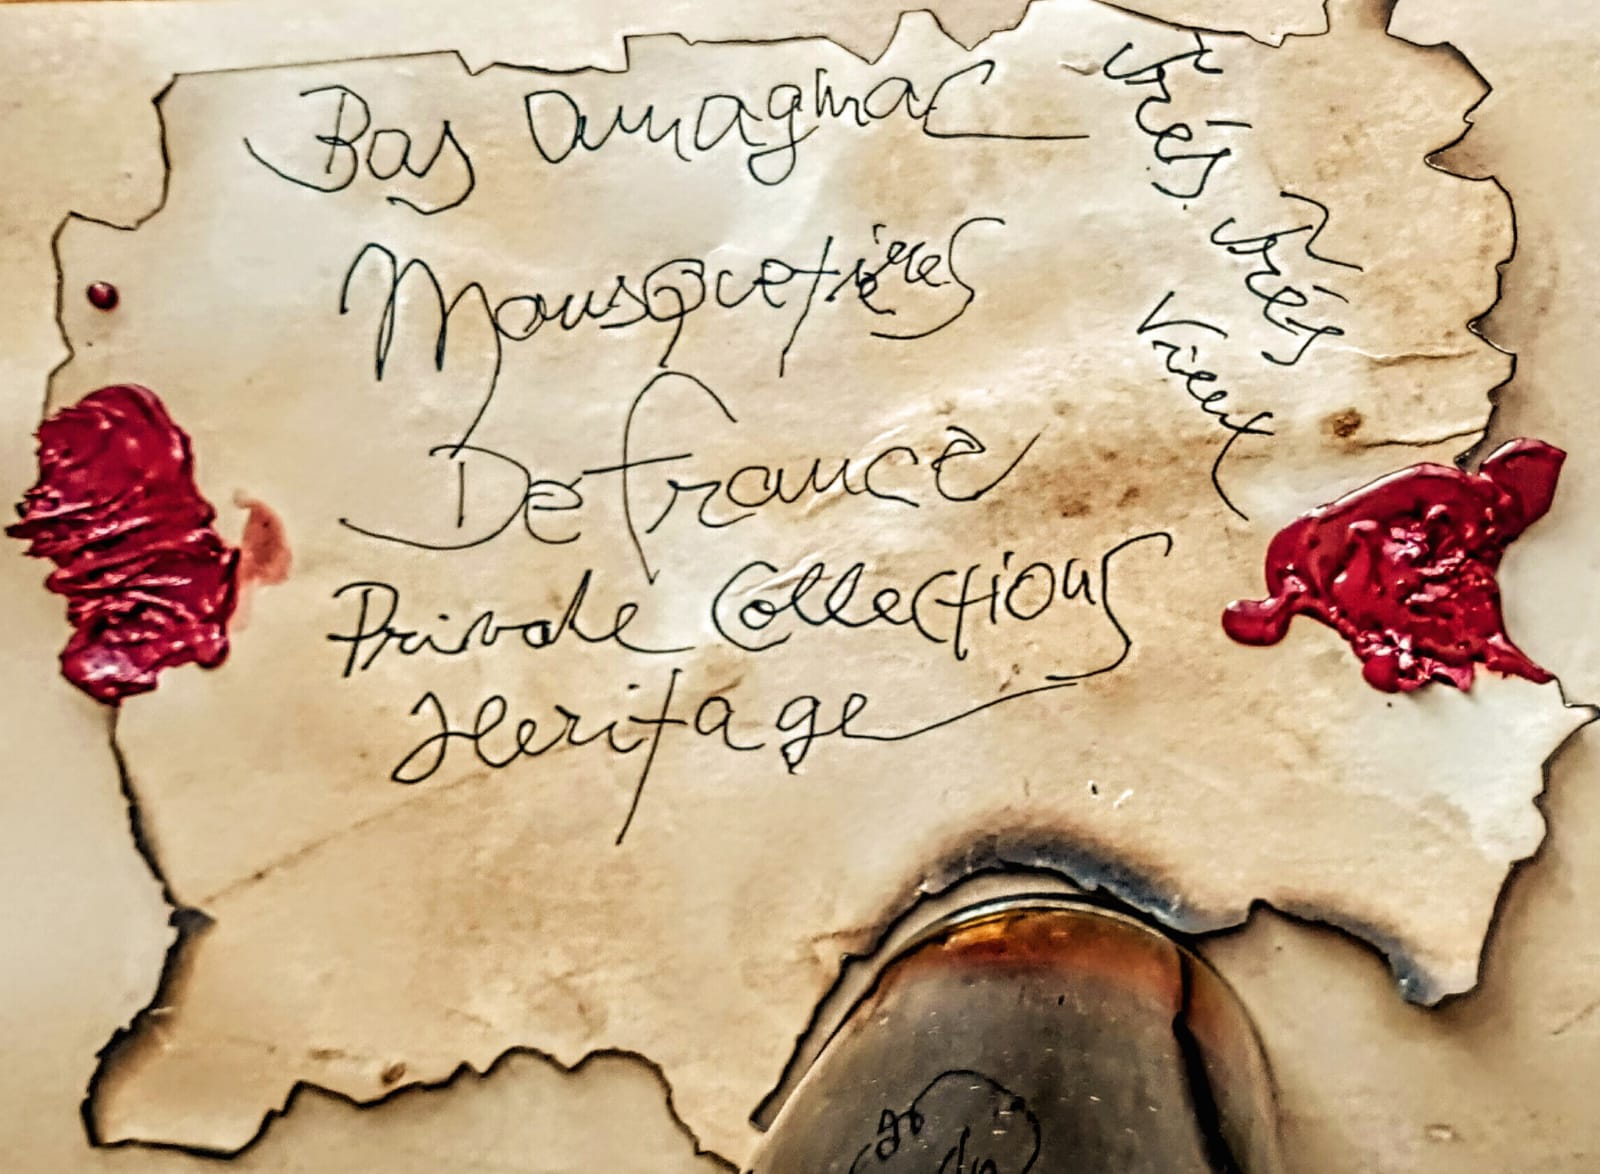 Bas Armagnac
Mousquetières
De france
Private Collections
Heritage
très
très
Vieux